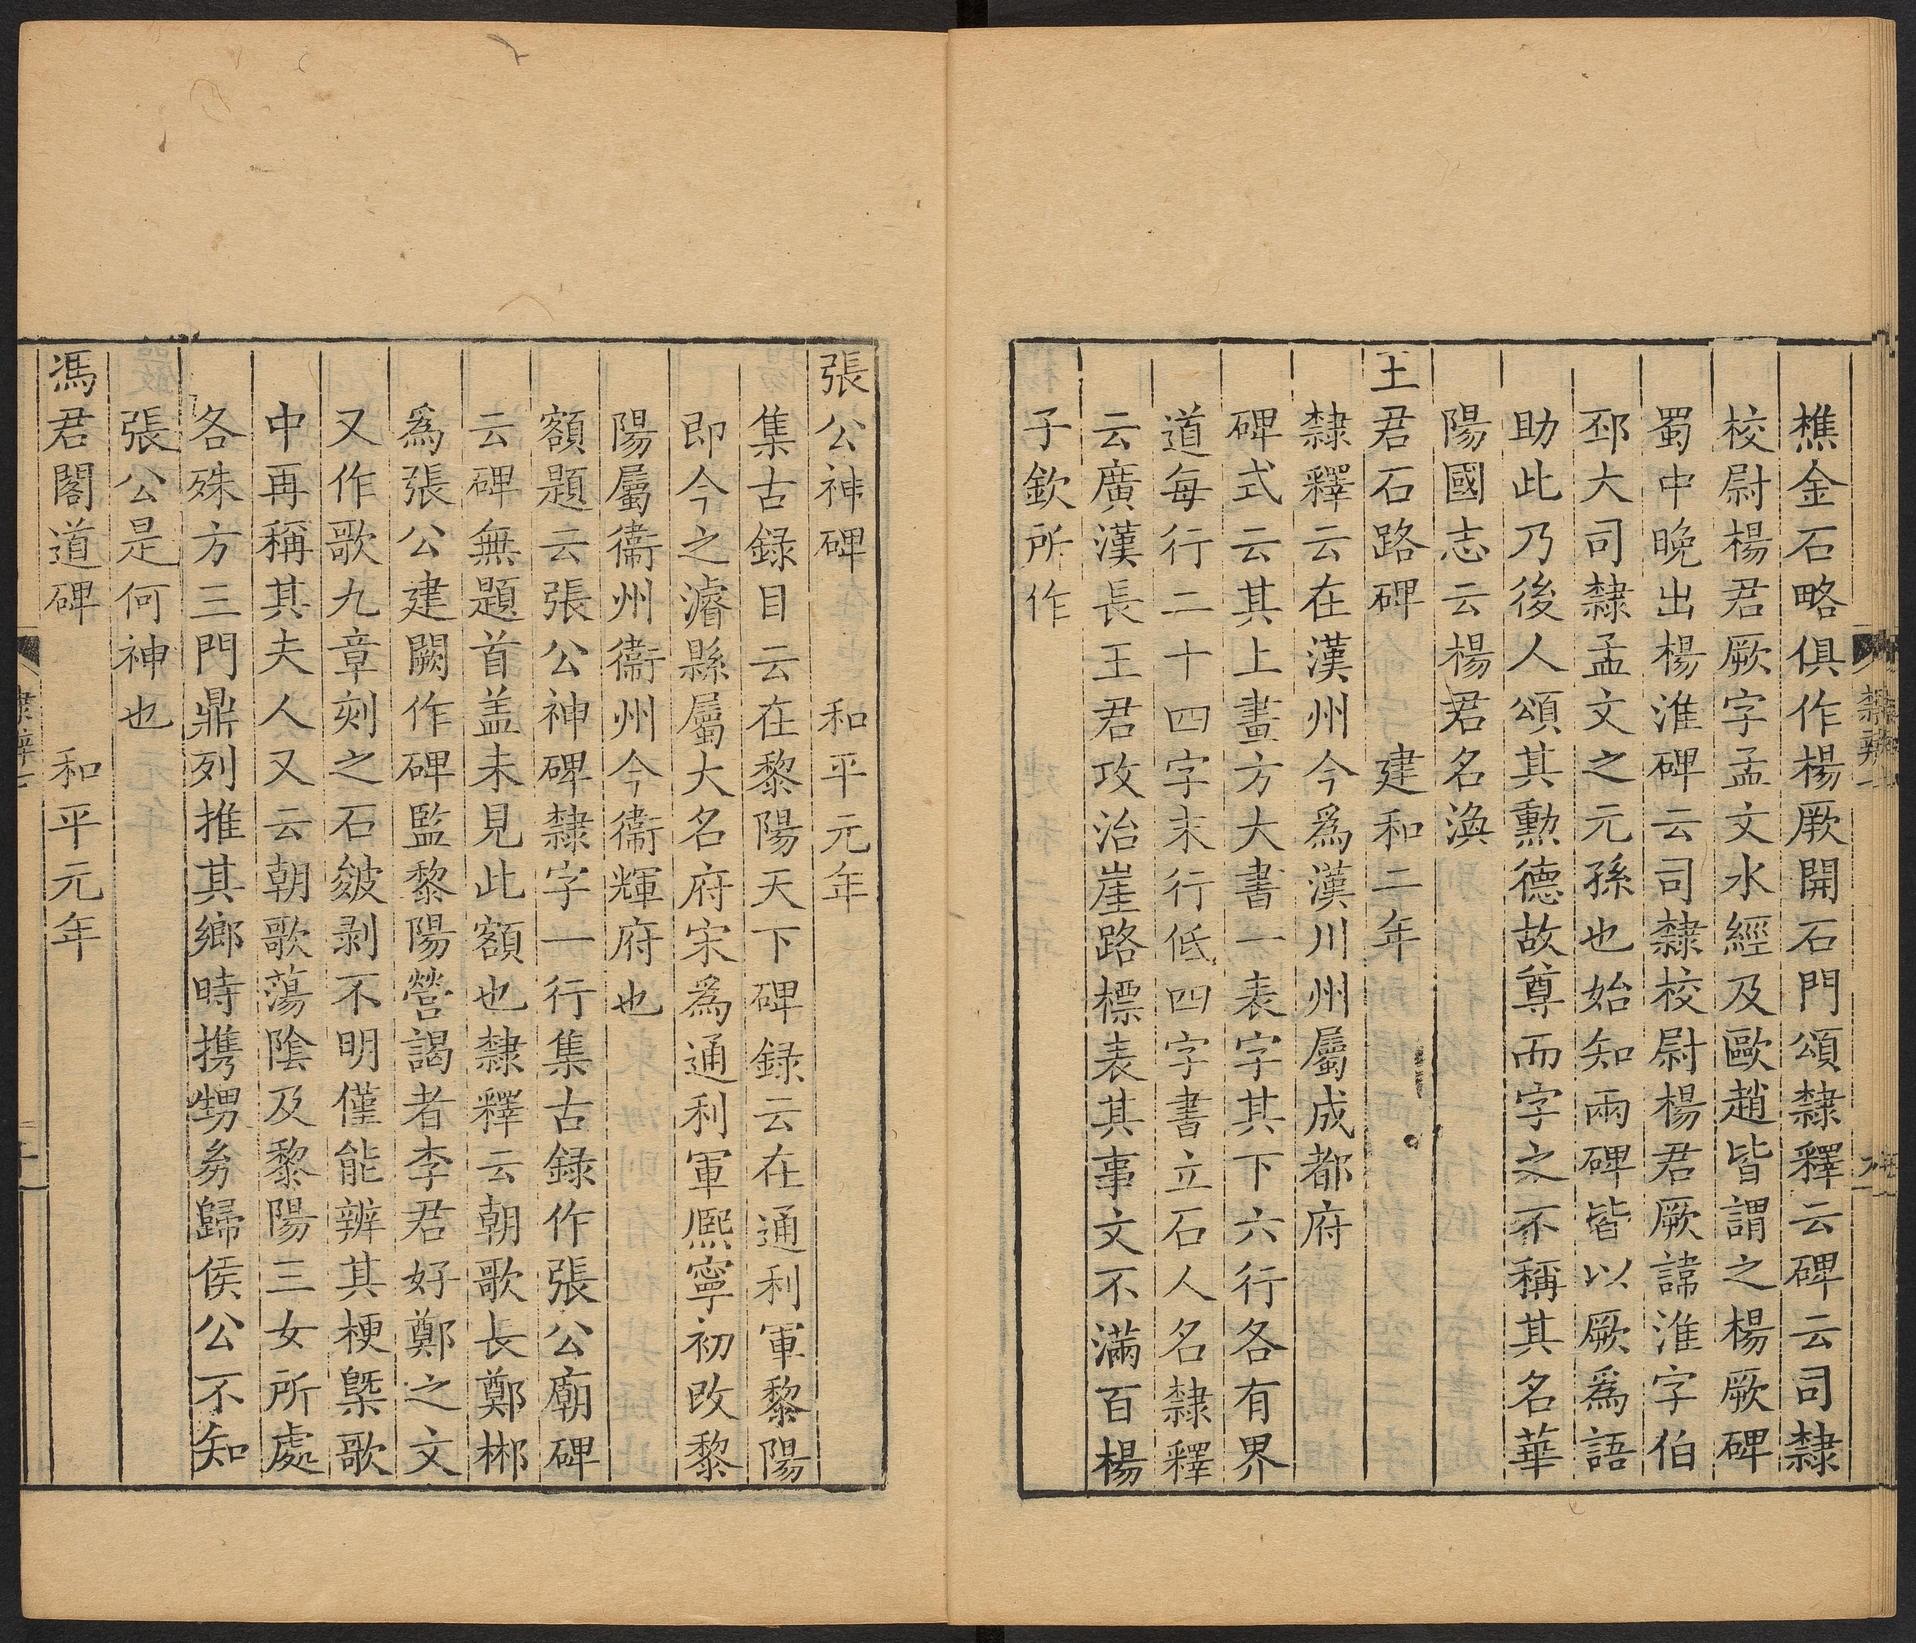 樵金石略俱作楊厥開石門頌隸釋云碑云司隸
校尉楊君厥字孟文水經及歐趙皆謂之楊厥碑
蜀中晚出楊淮碑云司隸校尉楊君厥諱淮字伯
邳大司隸孟文之元孫也始知兩碑皆以厥爲語
助此乃後人頌其勲德故尊而字之不稱其名華
陽國志云楊君名渙
王君石路碑 建和二年
隸釋云在漢州今爲漢川州屬成都府
碑式云其上畫方大書一表字其下六行各有界
道每行二十四字末行低四字書立石人名隸釋
云廣漢長王君攻治崖路標表其事文不滿百楊
子欽所作
張公神碑 和平元年
集古録目云在黎陽天下碑録云在通利軍黎陽
即今之濬縣屬大名府宋爲通利軍熈寧初改黎
陽屬衞州衞州今衞輝府也
額題云張公神碑隸字一行集古録作張公廟碑
云碑無題首盖未見此額也隸釋云朝歌長鄭郴
爲張公建闕作碑監黎陽營謁者李君好鄭之文
又作歌九章刻之石皴剥不明僅能辨其梗槩歌
中再稱其夫人又云朝歌蕩陰及黎陽三女所處
各殊方三門鼎列推其鄉時携甥𠡠歸侯公不知
張公是何神也
馮君閣道碑 和平元年